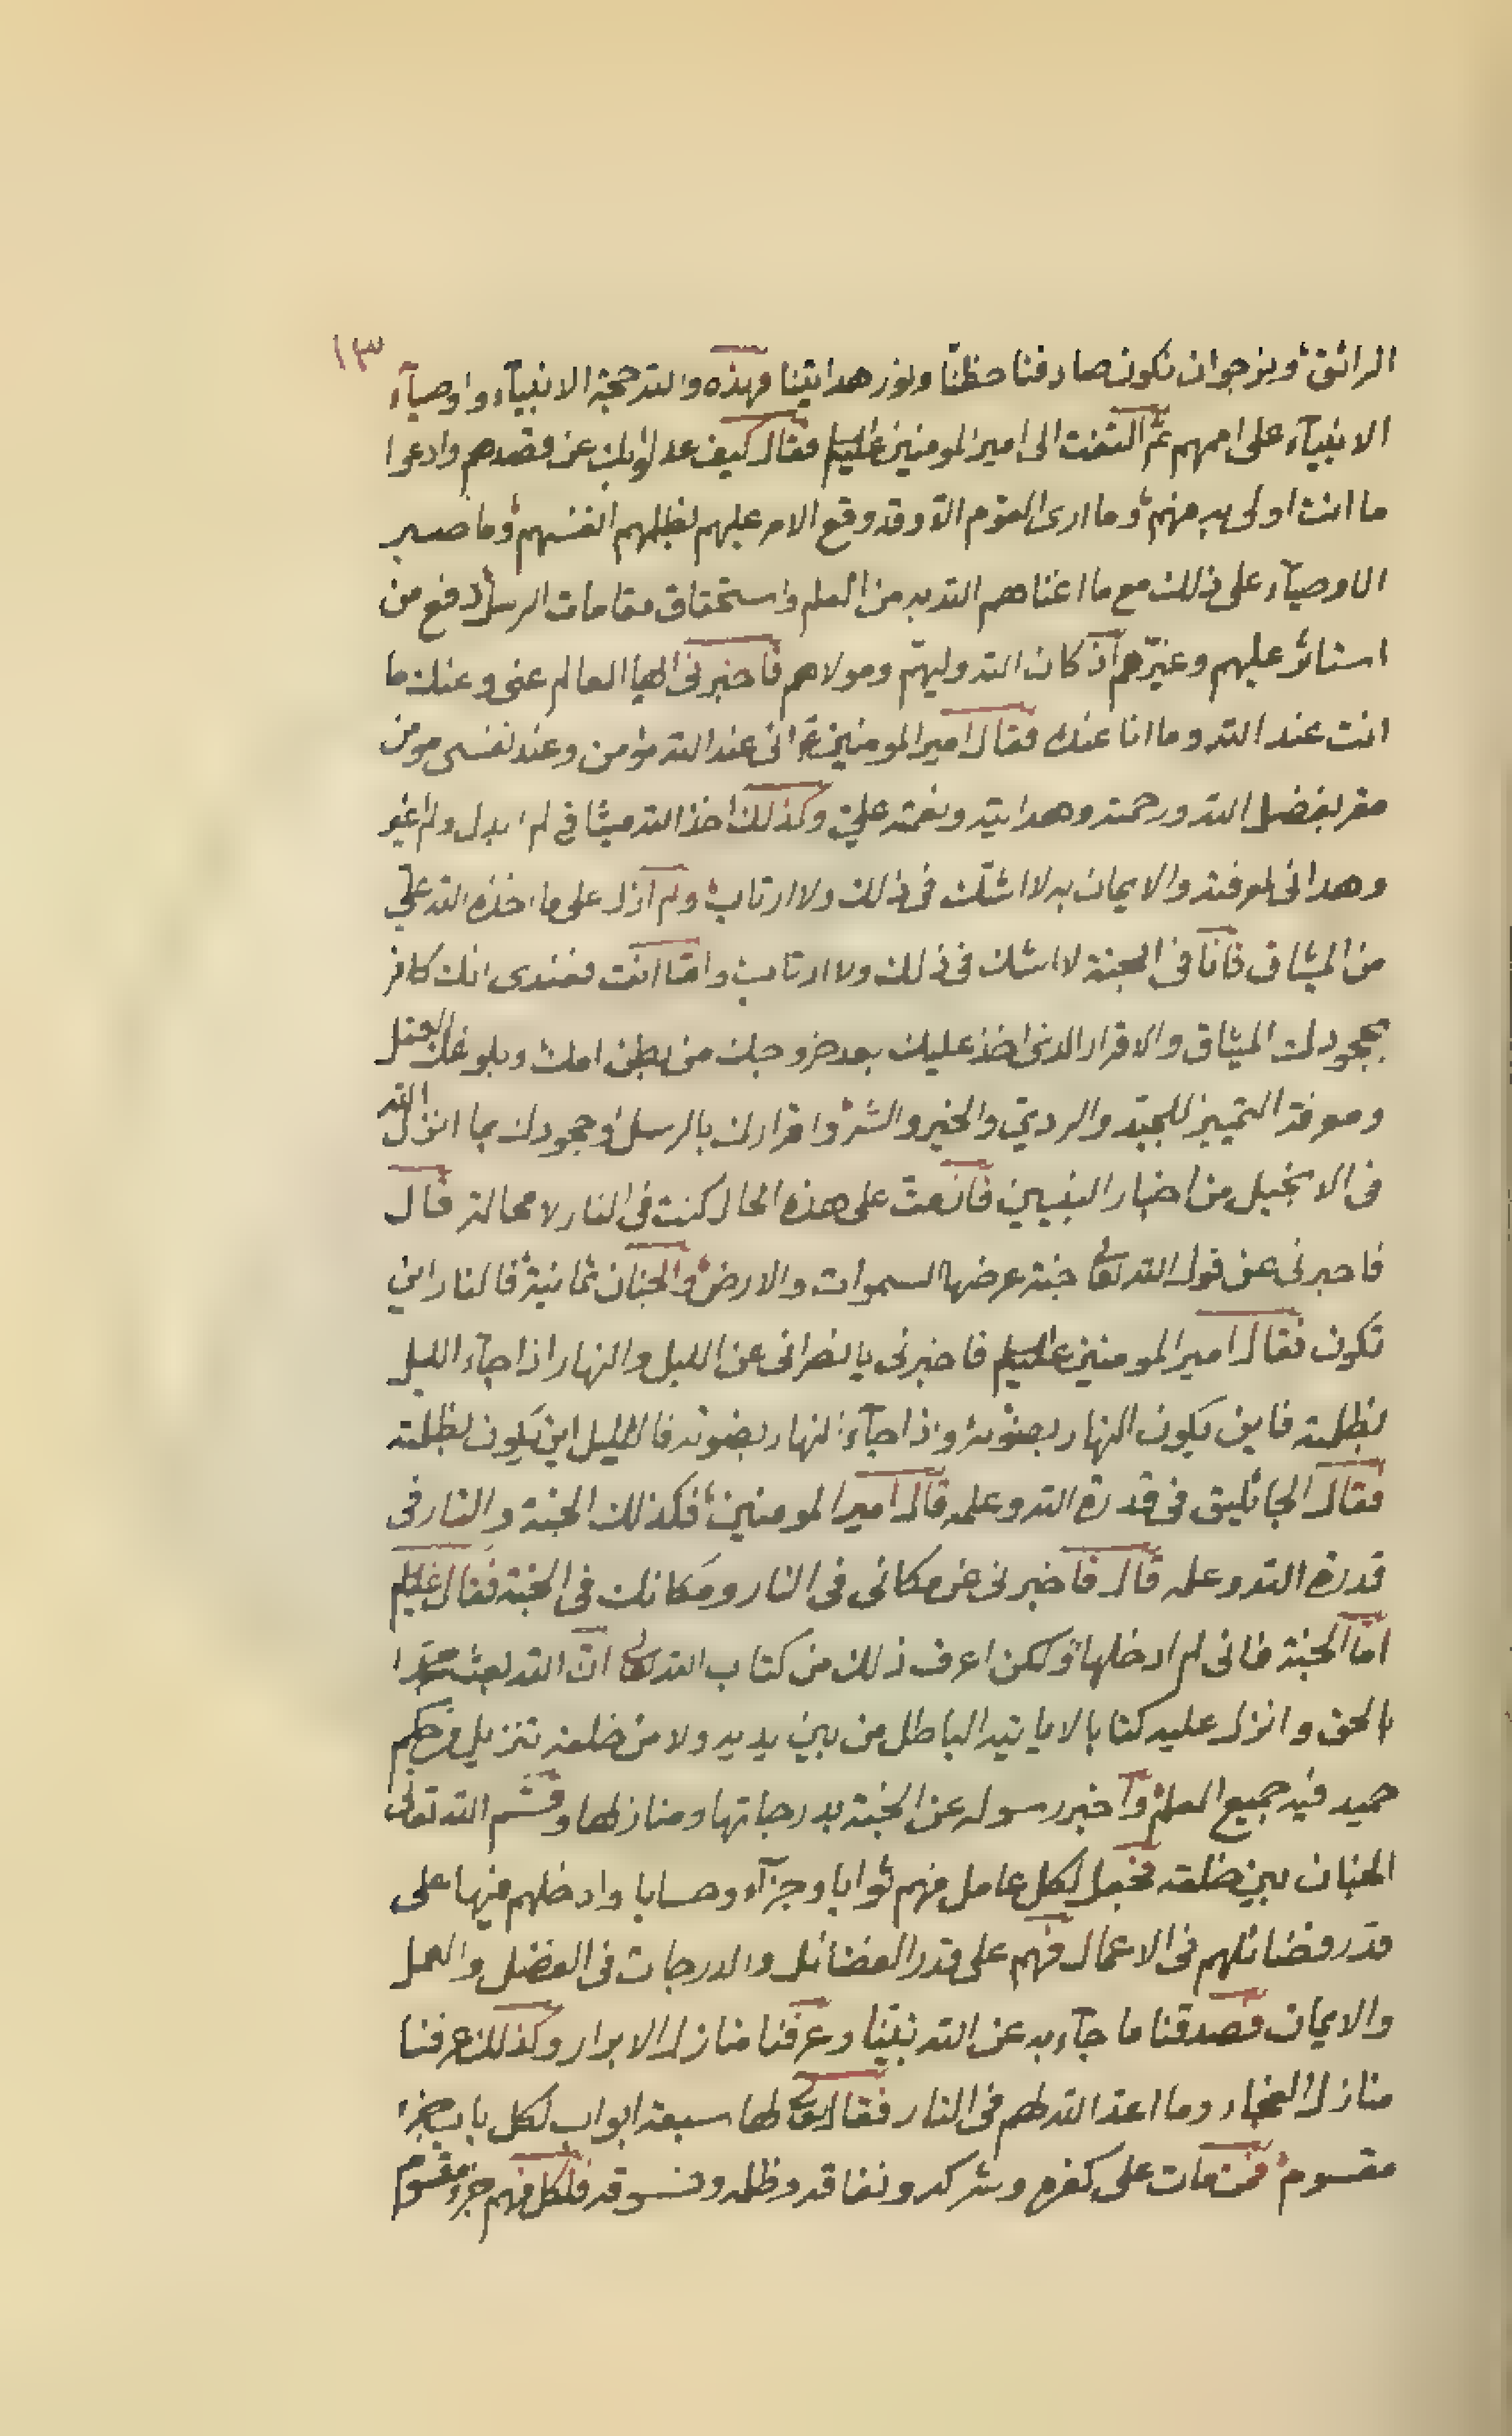 ١٣
الرائق ونرجوان نكون صادفنا حظنّا ونور هدايتنا فهذه والله حجة الانبيآء واوصيآء
الانبيآء على اممهم ثمّ التفت الى امير المومنين عليه السلم فقال كيف عدلوا بك عن قصدهم وادعوا
ما انت اولى به منهم وما ارى القوم الا وقد وقع الامر عليهم لظلمهم انفسهم وما صبر
الاوصيآء على ذلك مع ما اغناهم الله به من العلم واستحقاق مقامات الرسل دفع من
استاثر عليهم وغيّرهم اذ كان الله وليهم ومولاهم فاخبرنى ايها العالم عنى وعنك ما
انت عند الله وما انا عندك فقال امير المومنين ع انى عند الله مؤمن وعند نفسى مومن
مقر بفضل الله ورحمته وهدايته ونعمته علىّ وكذلك اخذ الله ميثاقى لم ابدل ولم اغير
وهدانى لمعرفته والايمان به لا اشكّ فى ذلك ولا ارتاب ولم ازل على ما اخذه الله علىّ
من الميثاق فانا فى الجنة لا اشك فى ذلك ولا ارتاب وامّا انت فعندى انك كافر
بجحودك الميثاق والاقرار الذى اخذ عليك بعد خروجك من بطن امك وبلوغك العقل
ومعرفة التمييز للجيّد والردىّ والخير والشر واقرارك بالرسل وجحودك بما انزل الله
فى الانجيل من اخبار النبيين فان مت على هذه الحال كنت فى النار لا محالة قال
فاخبرنى عن قول الله تعالى جنة عرضها السموات والارض والجنان ثمانية فالنار اين
تكون فقال امير المومنين عليه السلم فاخبرنى يا نصرانى عن الليل والنهار اذا جآء الليل
بظلمته فاين يكون النهار بضوئه واذا جآء النهار بضوئه فالليل اين يكون بظلمته
فقال الجاثليق فى قدرة الله وعلمه قال امير المومنين فكذلك الجنة والنار فى
قدرة الله وعلمه قال فاخبرنى عن مكانى فى النار ومكانك فى الجنة فقال عليه السلم
امّا الجنة فانى لم ادخلها ولكن اعرف ذلك من كتاب الله تعالى انّ الله بعث محمدا
بالحق وانزل عليه كتابا لا ياتيه الباطل من بين يديه ولا من خلفه تنزيل من حكيم
حميد فيه جميع العلم واخبر رسوله عن الجنة بدرجاتها ومنازلها وقسّم الله تعالى
الجنان بين خلقه فجعل لكل عامل منهم ثوابا وجزآء وحسابا وادخلهم فيها على
قدر فضائلهم فى الاعمال فهم على قدر الفضائل والدرجات فى الفضل والعمل
والايمان فصدقنا ما جآء به عن الله نبيّنا وعرفنا منازل الابرار وكذلك عرفنا
منازل الفجار وما اعد الله لهم فى النار فقال تعالى لها سبعة ابواب لكل باب جزء
مقسوم فمن مات على كفره وشركه ونفاقه وظلمه وفسوقه فلكل منهم جزء مقسوم